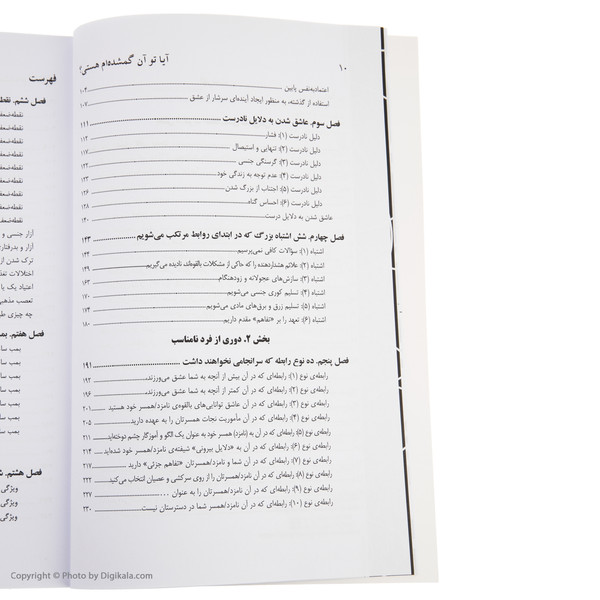 ۱۰ آیا تو آن گمشده‌ام هستی؟
اعتمادبه‌نفس پایین ۱۰۴
استفاده از گذشته، به منظور ایجاد آینده‌ای سرشار از عشق ۱۰۷
فصل سوم. عاشق شدن به دلایل نادرست ۱۱۱
دلیل نادرست (۱): فشار ۱۱۲
دلیل نادرست (۲): تنهایی و استیصال ۱۱۷
دلیل نادرست (۳): گرسنگی جنسی ۱۲۲
دلیل نادرست (۴): عدم توجه به زندگی خود ۱۲۳
دلیل نادرست (۵): اجتناب از بزرگ شدن ۱۲۶
دلیل نادرست (۶): احساس گناه ۱۲۸
عاشق شدن به دلایل درست ۱۴۰
فصل چهارم. شش اشتباه بزرگ که در ابتدای روابط مرتکب می‌شویم ۱۴۳
اشتباه (۱): سؤالات کافی نمی‌پرسیم ۱۴۴
اشتباه (۲): علائم هشداردهنده را که حاکی از مشکلات بالقوه‌اند، نادیده می‌گیریم ۱۴۹
اشتباه (۳): سازش‌های عجولانه و زودهنگام ۱۶۳
اشتباه (۴): تسلیم کوری جنسی می‌شویم ۱۷۰
اشتباه (۵): تسلیم زرق و برق‌های مادی می‌شویم ۱۷۴
اشتباه (۶): تعهد را بر «تفاهم» مقدم داریم ۱۸۰
بخش ۲. دوری از فرد نامناسب
فصل پنجم. ده نوع رابطه که سرانجامی نخواهند داشت ۱۹۱
رابطه‌ی نوع (۱): رابطه‌ای که در آن بیش از آنچه به شما عشق می‌ورزند، ۱۹۲
رابطه‌ی نوع (۲): رابطه‌ای که در آن کمتر از آنچه به شما عشق می‌ورزند، ۱۹۶
رابطه‌ی نوع (۳): رابطه‌ای که در آن عاشق توانایی‌های بالقوه‌ی نامزد/همسر خود هستید ۲۰۱
رابطه‌ی نوع (۴): رابطه‌ای که در آن مأموریت نجات همسرتان را به عهده دارید ۲۰۵
رابطه‌ی نوع (۵): رابطه‌ای که در آن به (نامزد) همسر خود به عنوان یک الگو و آموزگار چشم دوخته‌اید ۲۱۱
رابطه‌ی نوع (۶): رابطه‌ای که در آن به «دلایل بیرونی» شیفته‌ی نامزد/همسر خود شده‌اید ۲۱۴
رابطه‌ی نوع (۷): رابطه‌ای که در آن شما و نامزد/همسرتان «تفاهم جزئی» دارید ۲۱۷
رابطه‌ی نوع (۸): رابطه‌ای که در آن نامزد/همسرتان را از روی سرکشی و عصیان انتخاب می‌کنید ۲۲۲
رابطه‌ی نوع (۹): رابطه‌ای که در آن نامزد/همسرتان را به عنوان ... ۲۲۷
رابطه‌ی نوع (۱۰): رابطه‌ای که در آن نامزد/همسر شما در دسترستان نیست ۲۳۰
فهرست
فصل ششم. نقطه
نقطه‌ضعف
نقطه‌ضعف
نقطه‌ضعف
نقطه‌ضعف
نقطه‌ضعف
نقطه‌ضعف
نقطه‌ضعف
نقطه‌ضعف
آزار جنسی و
آزار و بدرفتار
ترک شدن از
اختلالات تغذ
اعتیاد یک یا
تعصب مذهبی
چه چیزی طب
فصل هفتم. بمب
بمب سا
بمب سا
بمب سا
بمب سا
بمب سا
بمب سا
بمب سا
فصل هشتم. ش
ویژگی
ویژگی
ویژگی
Copyright © Photo by Digikala.com